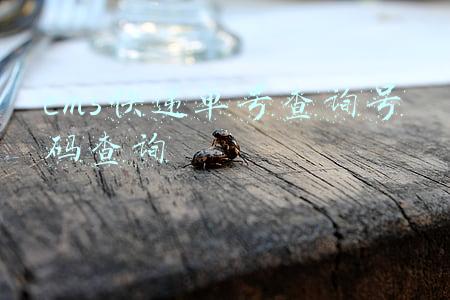 ems快递单号查询号
码查询